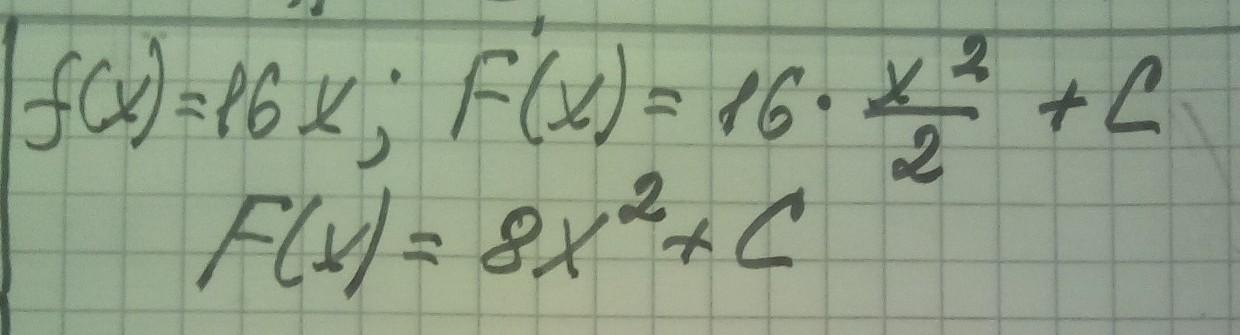 f(x)=16x; F(x)=16·x²/2+C
F(x)=8x²+C